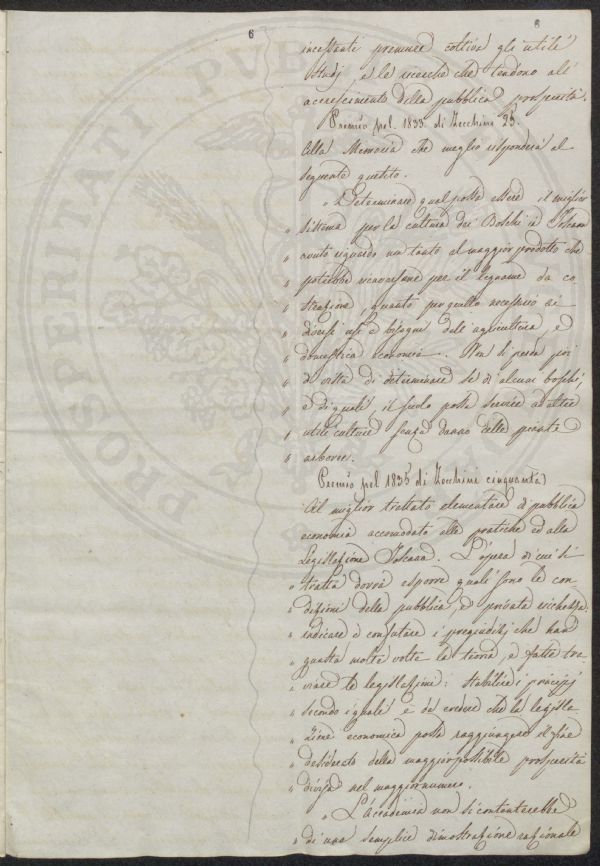 6
8
incessanti premure coltiva gli utili
studj, e le ricerche che tendono all'
accrescimento della pubblica prosperità.
Premio pel 1833 di Zecchini 25.
Alla Memoria che meglio risponderà al
seguente quesito.
" Determinare qual possa essere il miglior
" sistema per la cultura dei Boschi in Toscana
" avuto riguardo un tanto al maggior prodotto che
" potrebbe ricavarsene per il legname da co
" struzione, quanto per quello necessario ai
" diversi usi e bisogni dell'agricultura, e
" domestica economia. Non si perda poi
" di vista di determinare se di alcuni boschi,
" e di quali, il suolo possa servire ad altre
" utili culture senza danno delle piante
" arboree.
Premio pel 1835 di Zecchini cinquanta
Al miglior trattato elementare di pubblica
economia accomodato alle pratiche ed alla
Legislazione Toscana. L'opera di cui si
" tratta dovrà esporre quali sono le con
" dizioni della pubblica, e privata ricchezza:
" indicare e confutare i pregiudizj che han
" guasta molte volte la teoria, e fatte tra-
" viare le legislazioni: stabilire i principj
" secondo i quali è da credere che la legisla
" zione economica possa raggiungere il fine
" desiderato della maggior possibile prosperità
" divisa nel maggior numero.
" L'Accademia non si contenterebbe
" di una semplice dimostrazione razionale
PROSPERITATI PUB